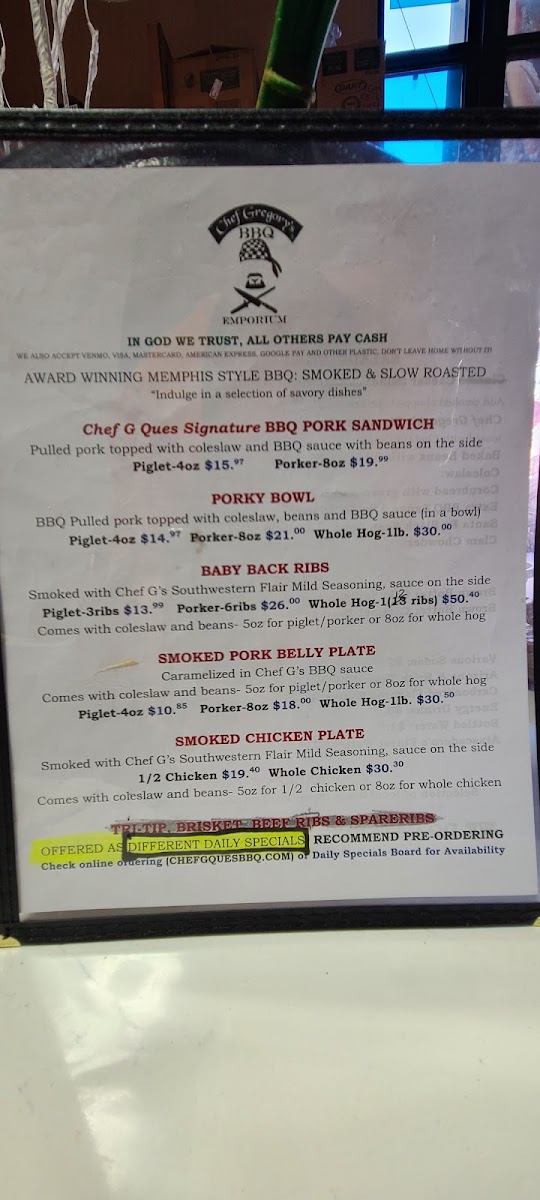 Chef Gregory's
BBQ
EMPORIUM
IN GOD WE TRUST, ALL OTHERS PAY CASH
WE ALSO ACCEPT VENMO, VISA, MASTERCARD, AMERICAN EXPRESS, GOOGLE PAY AND OTHER PLASTIC. DON'T LEAVE HOME WITHOUT IT!
AWARD WINNING MEMPHIS STYLE BBQ: SMOKED & SLOW ROASTED
"Indulge in a selection of savory dishes"
Chef G Ques Signature BBQ PORK SANDWICH
Pulled pork topped with coleslaw and BBQ sauce with beans on the side
Piglet-4oz $15.97 Porker-8oz $19.99
PORKY BOWL
BBQ Pulled pork topped with coleslaw, beans and BBQ sauce (in a bowl)
Piglet-4oz $14.97 Porker-8oz $21.00 Whole Hog-1lb. $30.00
BABY BACK RIBS
Smoked with Chef G's Southwestern Flair Mild Seasoning, sauce on the side
Piglet-3ribs $13.99 Porker-6ribs $26.00 Whole Hog-1(12 ribs) $50.40
Comes with coleslaw and beans- 5oz for piglet/porker or 8oz for whole hog
SMOKED PORK BELLY PLATE
Caramelized in Chef G's BBQ sauce
Comes with coleslaw and beans- 5oz for piglet/porker or 8oz for whole hog
Piglet-4oz $10.85 Porker-8oz $18.00 Whole Hog-1lb. $30.50
SMOKED CHICKEN PLATE
Smoked with Chef G's Southwestern Flair Mild Seasoning, sauce on the side
1/2 Chicken $19.40 Whole Chicken $30.30
Comes with coleslaw and beans- 5oz for 1/2 chicken or 8oz for whole chicken
TRI-TIP, BRISKET, BEEF RIBS & SPARERIBS
OFFERED AS DIFFERENT DAILY SPECIALS RECOMMEND PRE-ORDERING
Check online ordering (CHEFGQUESBBQ.COM) or Daily Specials Board for Availability